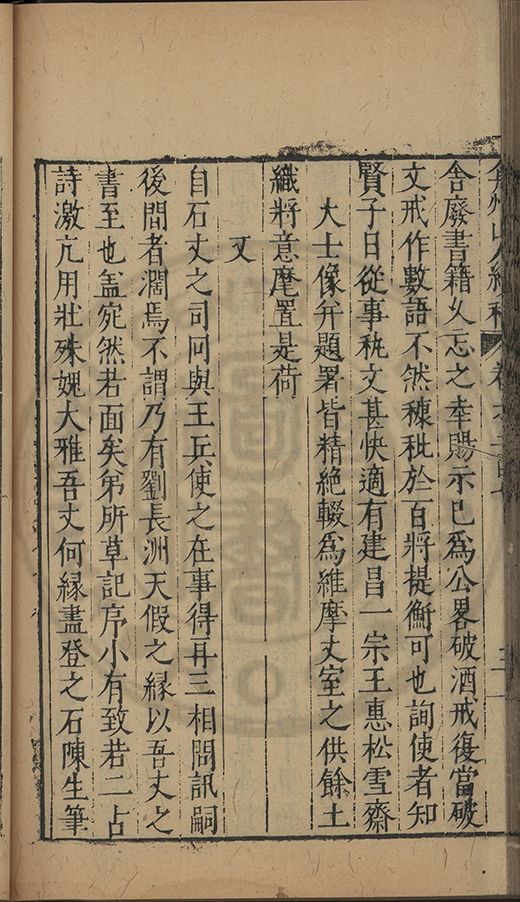 弇州山人續稿 卷之
舍廢書籍久忘之幸賜示已爲公畧破酒戒復當破
文戒作數語不然穅秕於百將提衡可也詢使者知
賢子日從事秇文甚快適有建昌一宗王惠松雪齋
大士像弁題署皆精絶輟爲維摩丈室之供餘土
織將意麾置是荷
又
自石丈之司冋與王兵使之在事得再三相問訊嗣
後間者濶焉不謂乃有劉長洲天假之緣以吾丈之
書至也盖宛然若面矣弟所草記序小有致若二占
詩激亢用壯殊媿大雅吾丈何緣盡登之石陳生筆